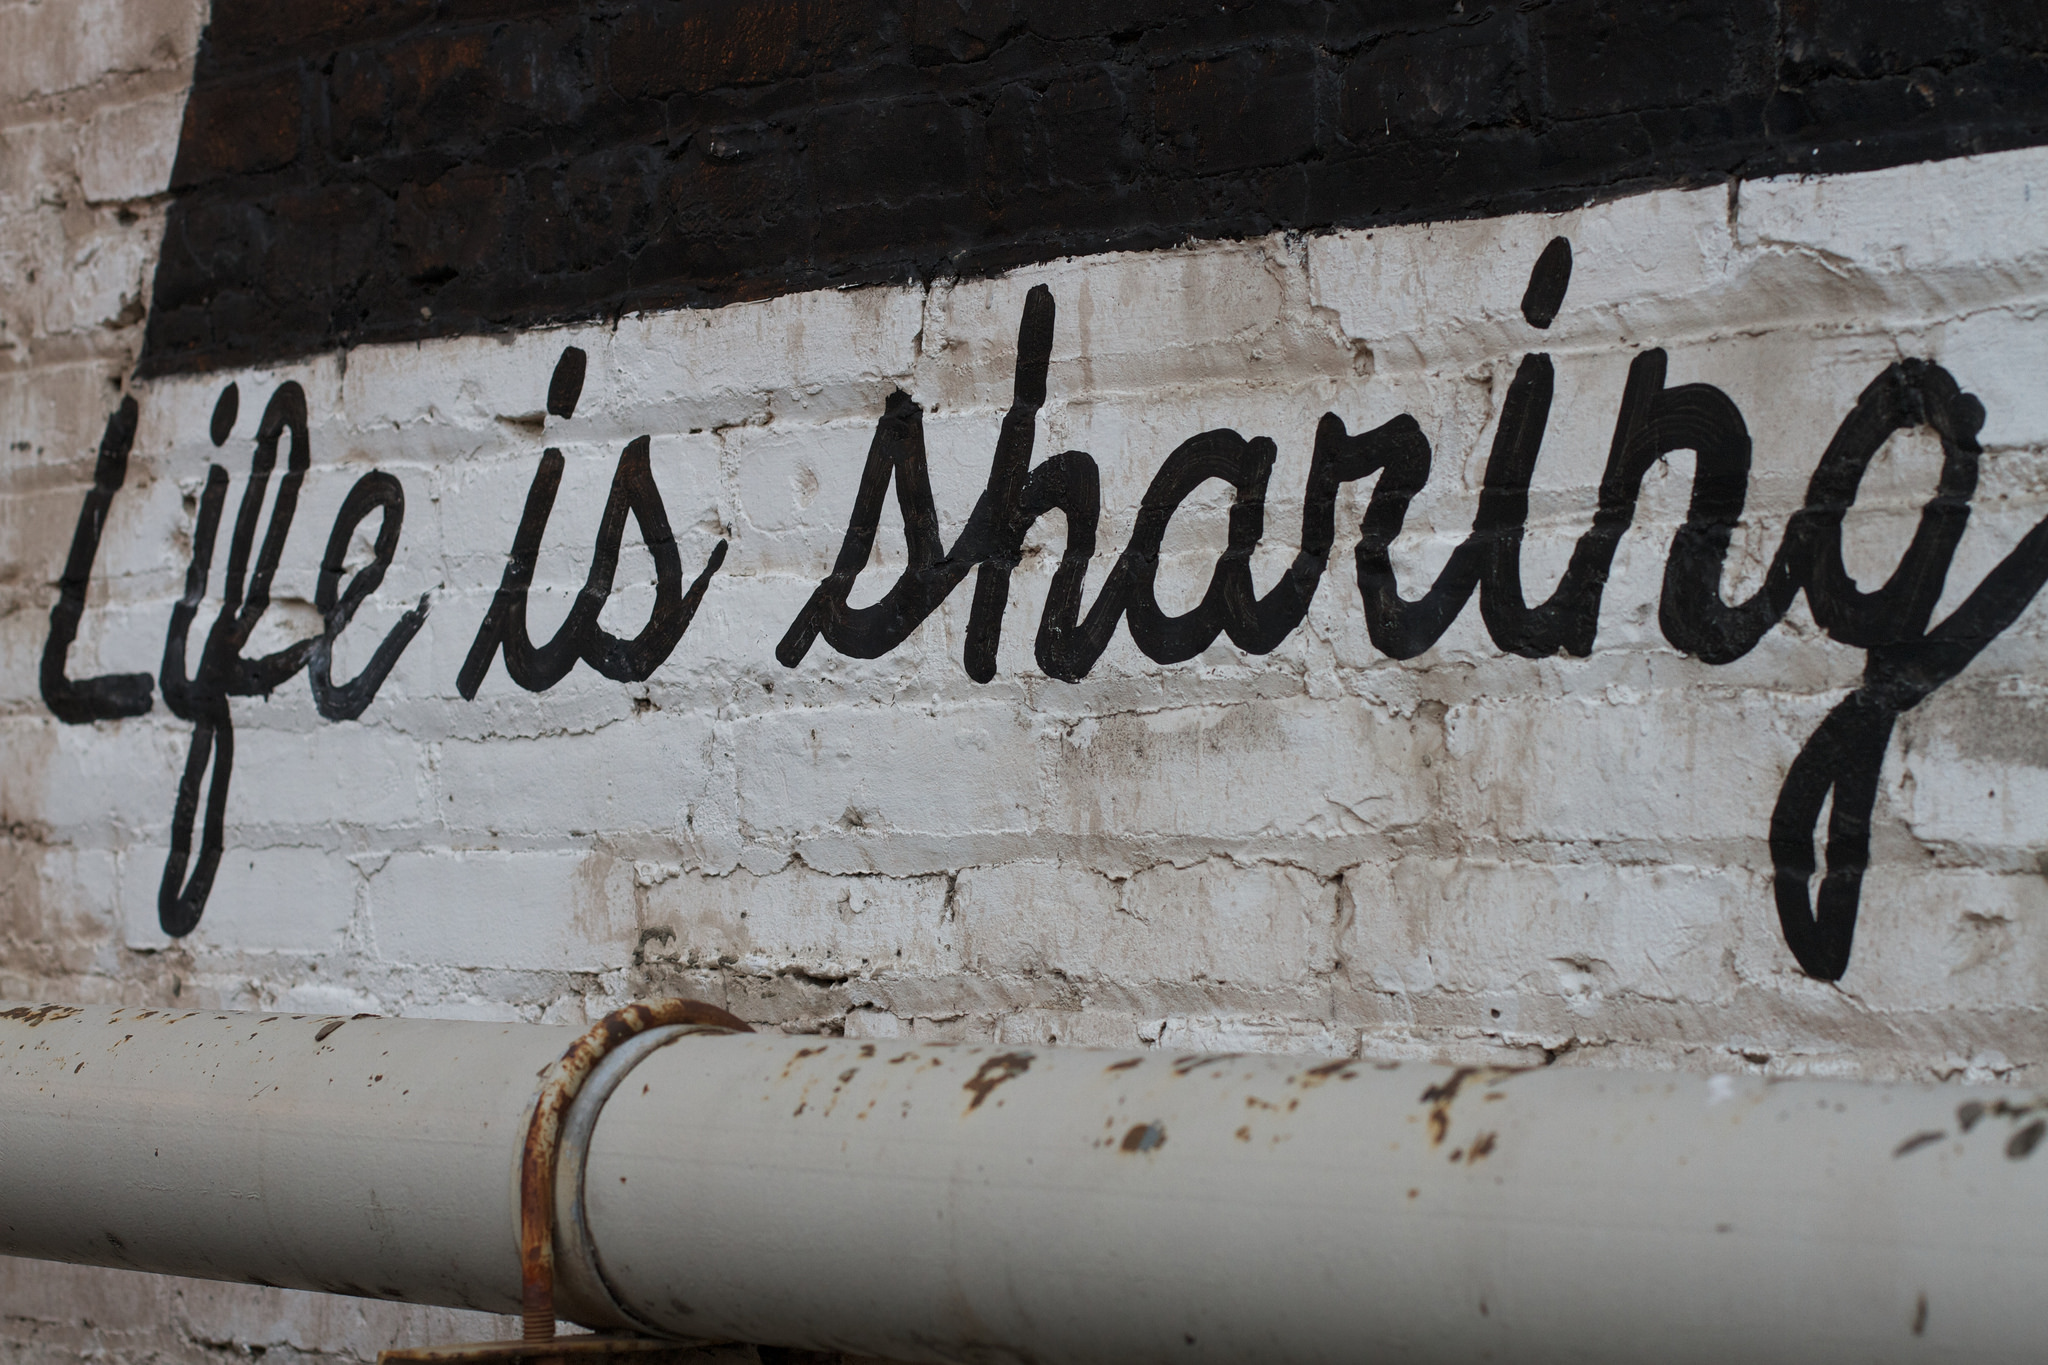 Life is sharing